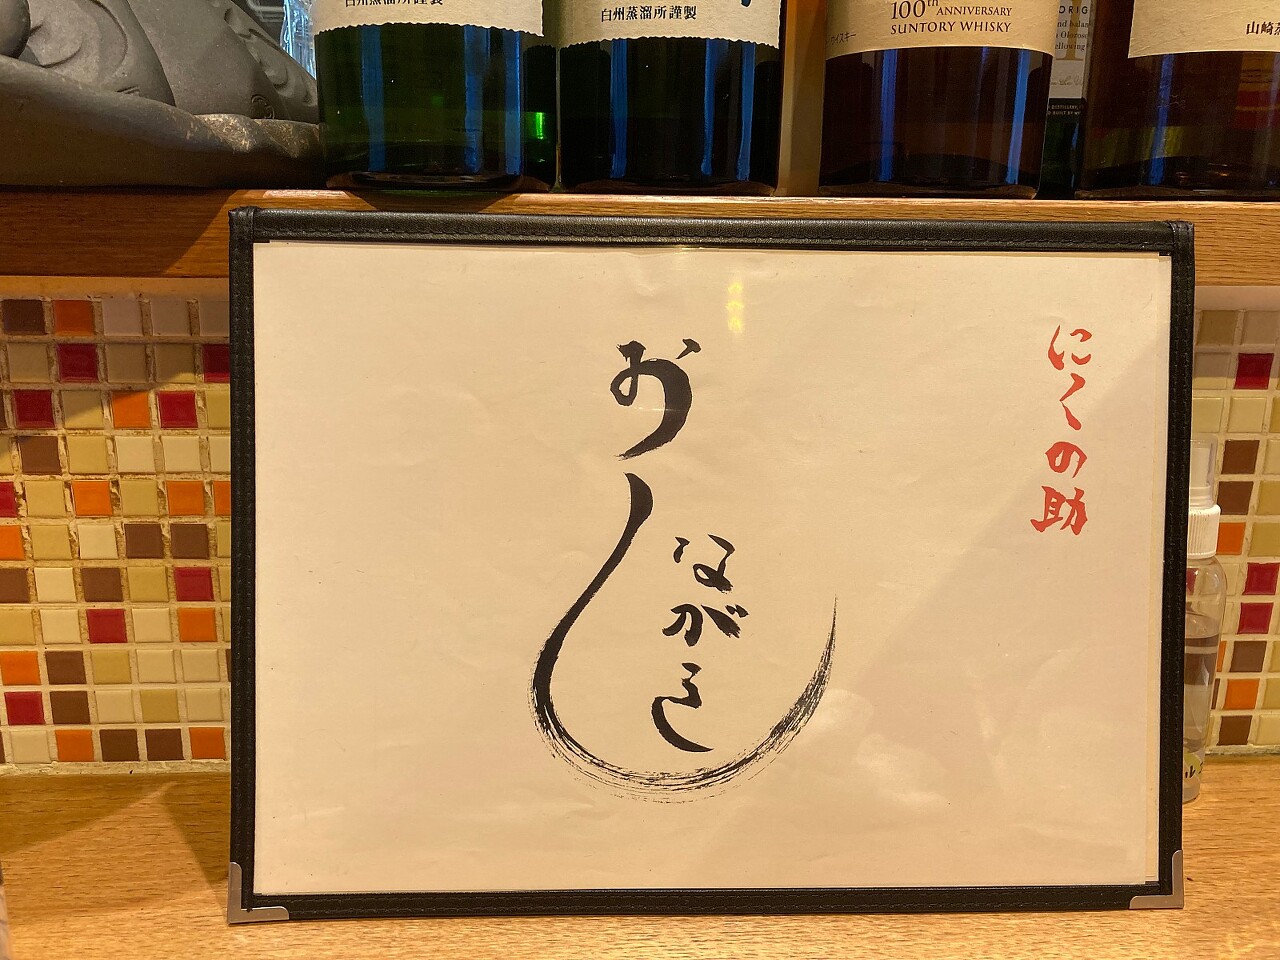 白州蒸溜所謹製
白州蒸溜所謹製
100th ANNIVERSARY
SUNTORY WHISKY
山崎
にくの助
おしながき